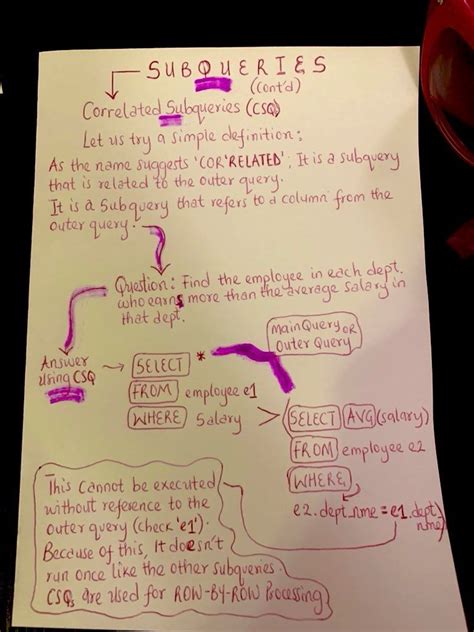 SUBQUERIES
(Cont'd)
Correlated Subqueries (CSQ)
Let us try a simple definition:
As the name suggests 'COR'RELATED'; It is a subquery
that is related to the outer query.
It is a Subquery that refers to a column from the
outer query.
Question: Find the employee in each dept.
who earns more than the average salary in
that dept.
Main Query OR
Outer Query
Answer
Using CSQ
SELECT *
FROM employee e1
WHERE Salary >
SELECT AVG (salary)
FROM employee e2
WHERE
e2.dept_nme = e1.dept_
nme)
This cannot be executed
without reference to the
outer query (check 'e1').
Because of this, It doesn't
run once like the other subqueries.
CSQs are used for ROW-BY-ROW Processing